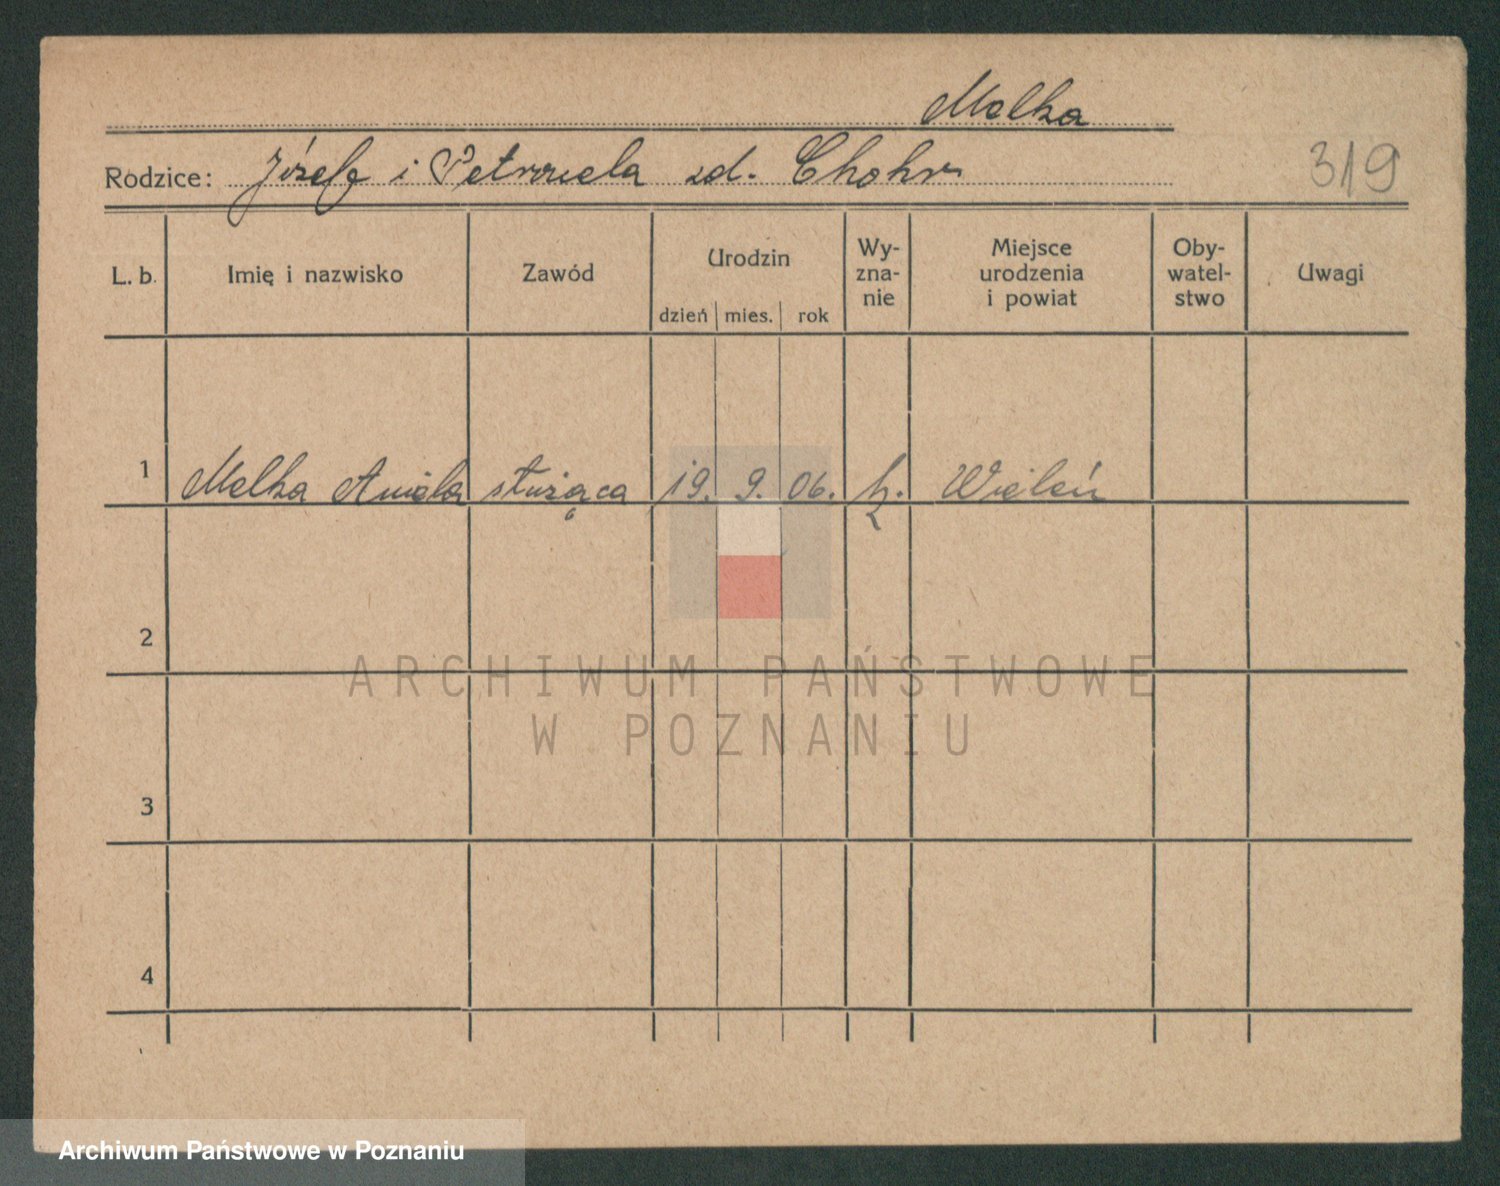 Melka
Rodzice: Józef i Petronela zd.
319
L. b. Imię i nazwisko Zawód Urodzin dzień mies. rok Wy-zna-nie Miejsce urodzenia i powiat Oby-watel-stwo Uwagi
1 Melka Aniela służąca 19. 9. 06. k. Wieleń
2
ARCHIWUM PAŃSTWOWE
W POZNANIU
3
4
Archiwum Państwowe w Poznaniu